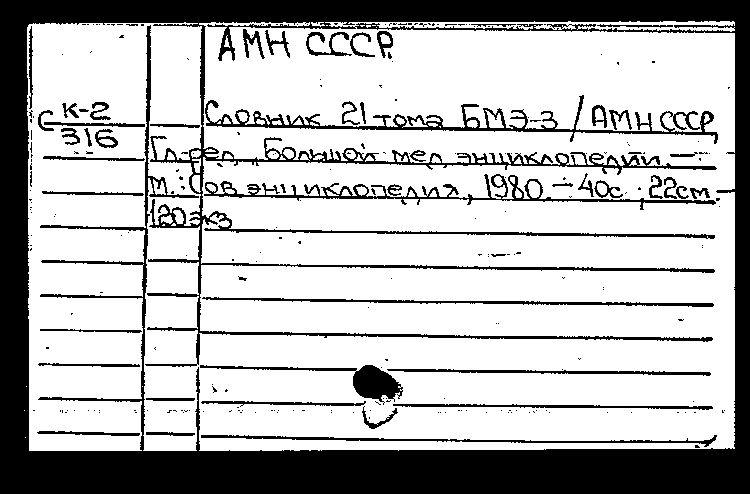 АМН СССР.
С К-2
316
Словник 21 тома БМЭ-3 / АМН СССР,
Гл. ред. „Большой мед. энциклопедии. —
М.: Сов. энциклопедия, 1980. — 40с.; 22см. —
120экз